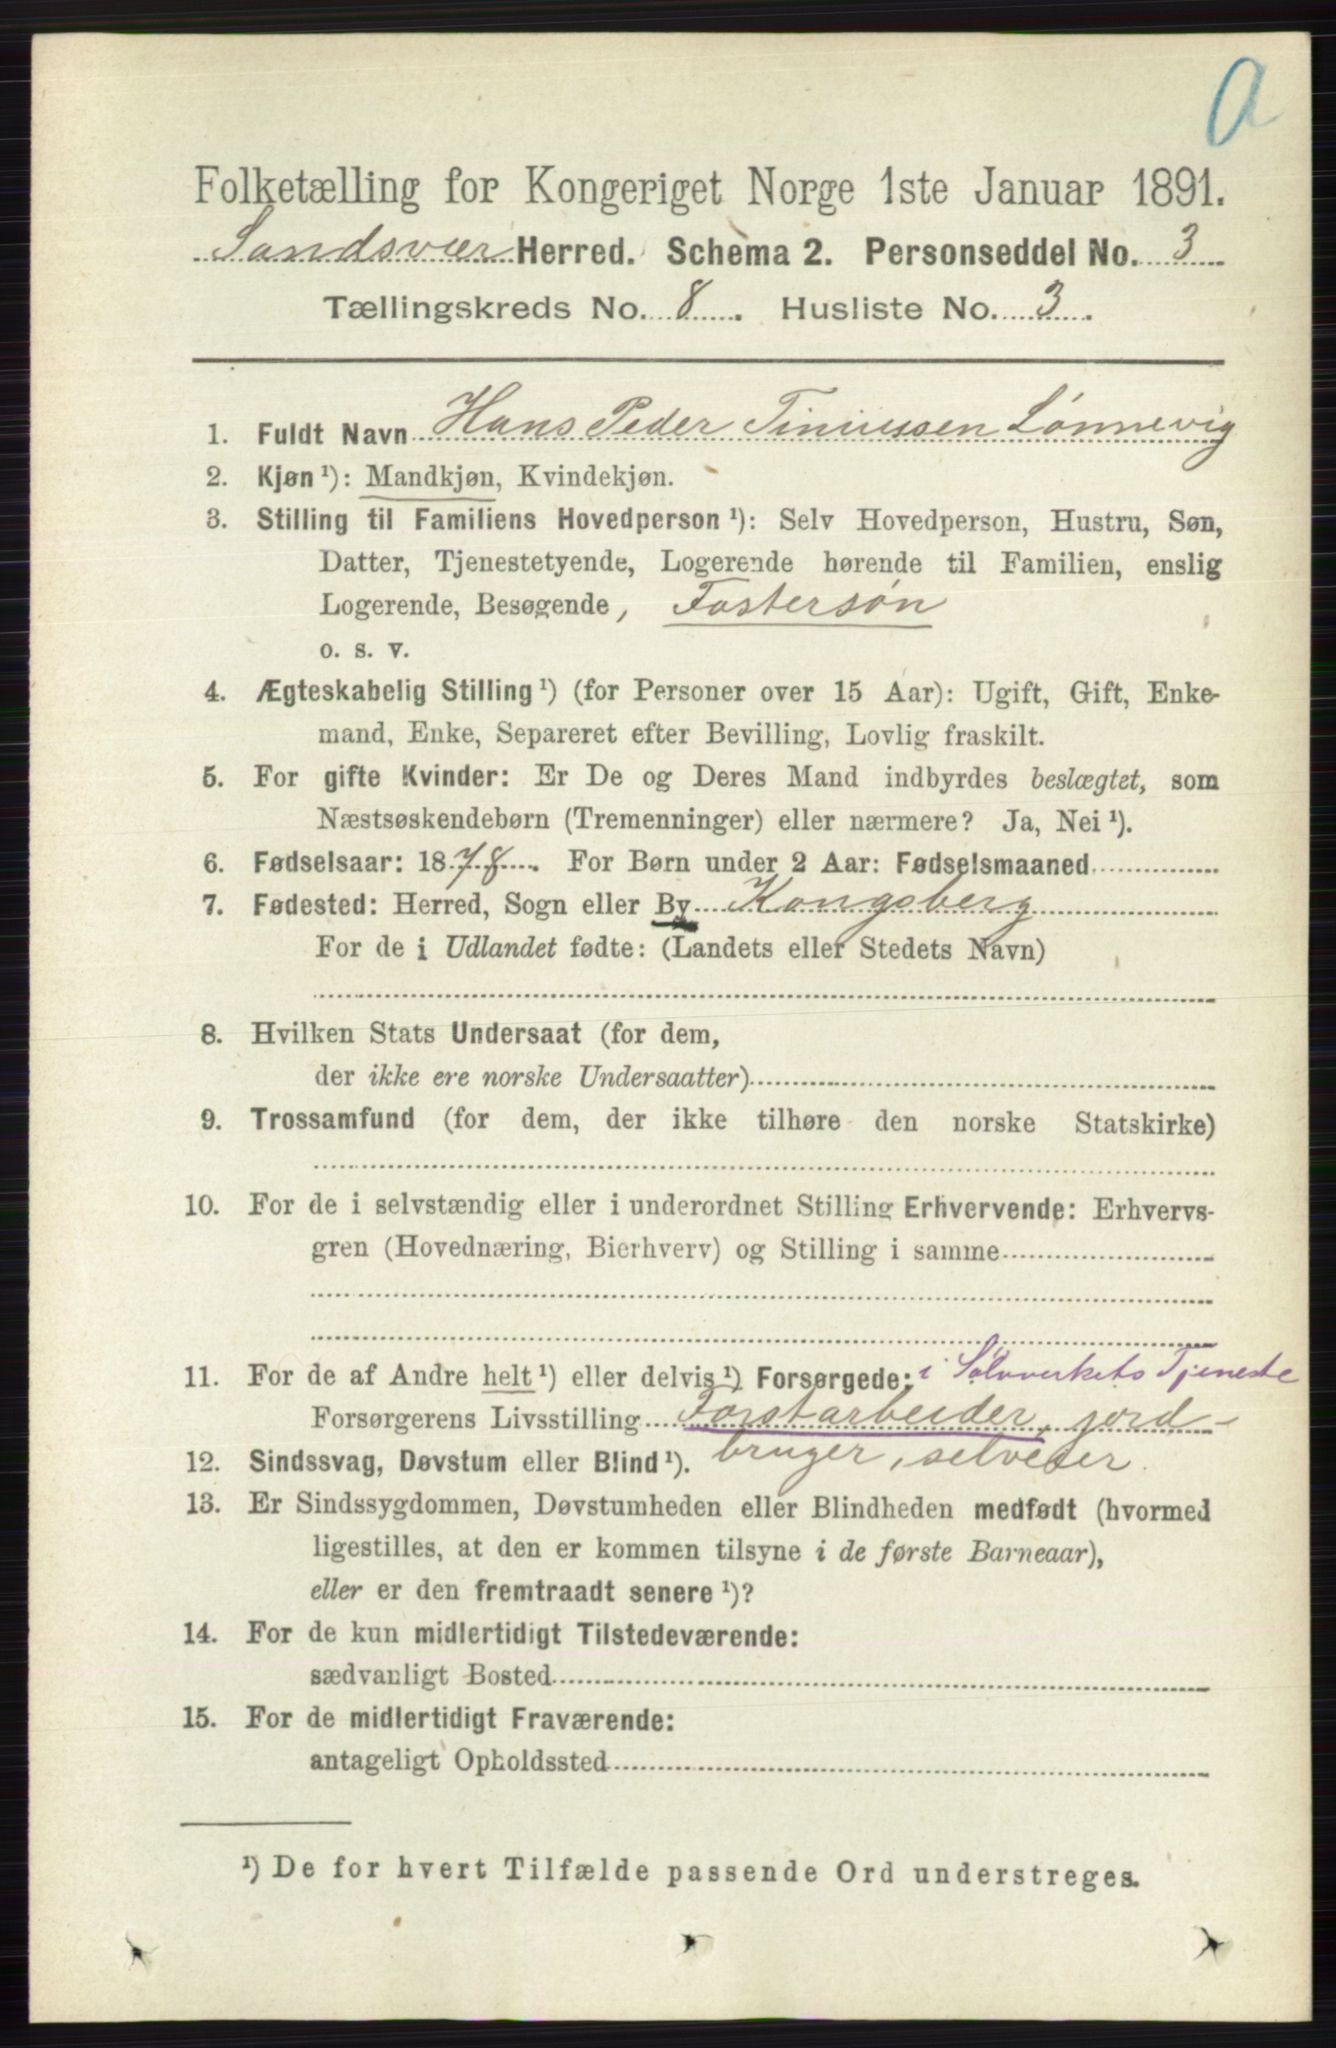 a
Folketælling for Kongeriget Norge 1ste Januar 1891.
Sandsvær Herred. Schema 2. Personseddel No. 3
Tællingskreds No. 8. Husliste No. 3.
1. Fuldt Navn Hans Peder Lønnevig
2. Kjøn ¹): Mandkjøn, Kvindekjøn.
3. Stilling til Familiens Hovedperson ¹): Selv Hovedperson, Hustru, Søn,
Datter, Tjenestetyende, Logerende hørende til Familien, enslig
Logerende, Besøgende, Fostersøn
o. s. v.
4. Ægteskabelig Stilling ¹) (for Personer over 15 Aar): Ugift, Gift, Enke-
mand, Enke, Separeret efter Bevilling, Lovlig fraskilt.
5. For gifte Kvinder: Er De og Deres Mand indbyrdes beslægtet, som
Næstsøskendebørn (Tremenninger) eller nærmere? Ja, Nei ¹).
6. Fødselsaar: 1878. For Børn under 2 Aar: Fødselsmaaned
7. Fødested: Herred, Sogn eller By Kongsberg
For de i Udlandet fødte: (Landets eller Stedets Navn)
8. Hvilken Stats Undersaat (for dem,
der ikke ere norske Undersaatter)
9. Trossamfund (for dem, der ikke tilhøre den norske Statskirke)
10. For de i selvstændig eller i underordnet Stilling Erhvervende: Erhvervs-
gren (Hovednæring, Bierhverv) og Stilling i samme
11. For de af Andre helt ¹) eller delvis ¹) Forsørgede: i Sølvverkets Tjeneste
Forsørgerens Livsstilling Forstarbeider, jord-
12. Sindssvag, Døvstum eller Blind ¹). bruger, selveier
13. Er Sindssygdommen, Døvstumheden eller Blindheden medfødt (hvormed
ligestilles, at den er kommen tilsyne i de første Barneaar),
eller er den fremtraadt senere ¹)?
14. For de kun midlertidigt Tilstedeværende:
sædvanligt Bosted
15. For de midlertidigt Fraværende:
antageligt Opholdssted
¹) De for hvert Tilfælde passende Ord understreges.